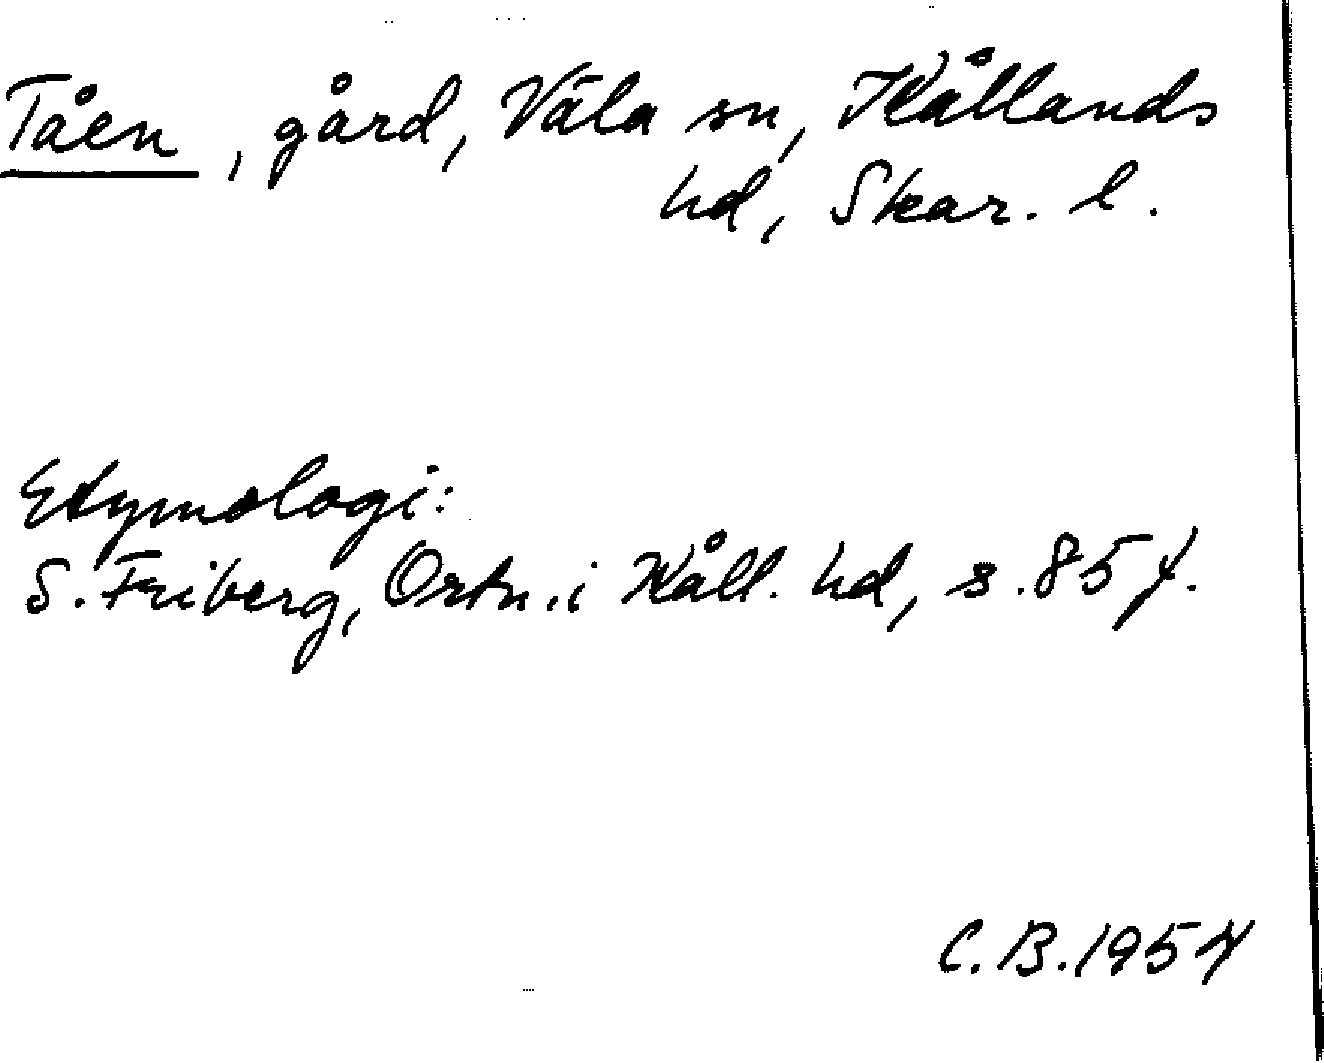 Tåen, gård, Väla sn, Kållands
hd, Skar. l.
Etymologi:
S. Friberg, Ortn. i Kåll. hd, s. 85 f.
C. B. 1954